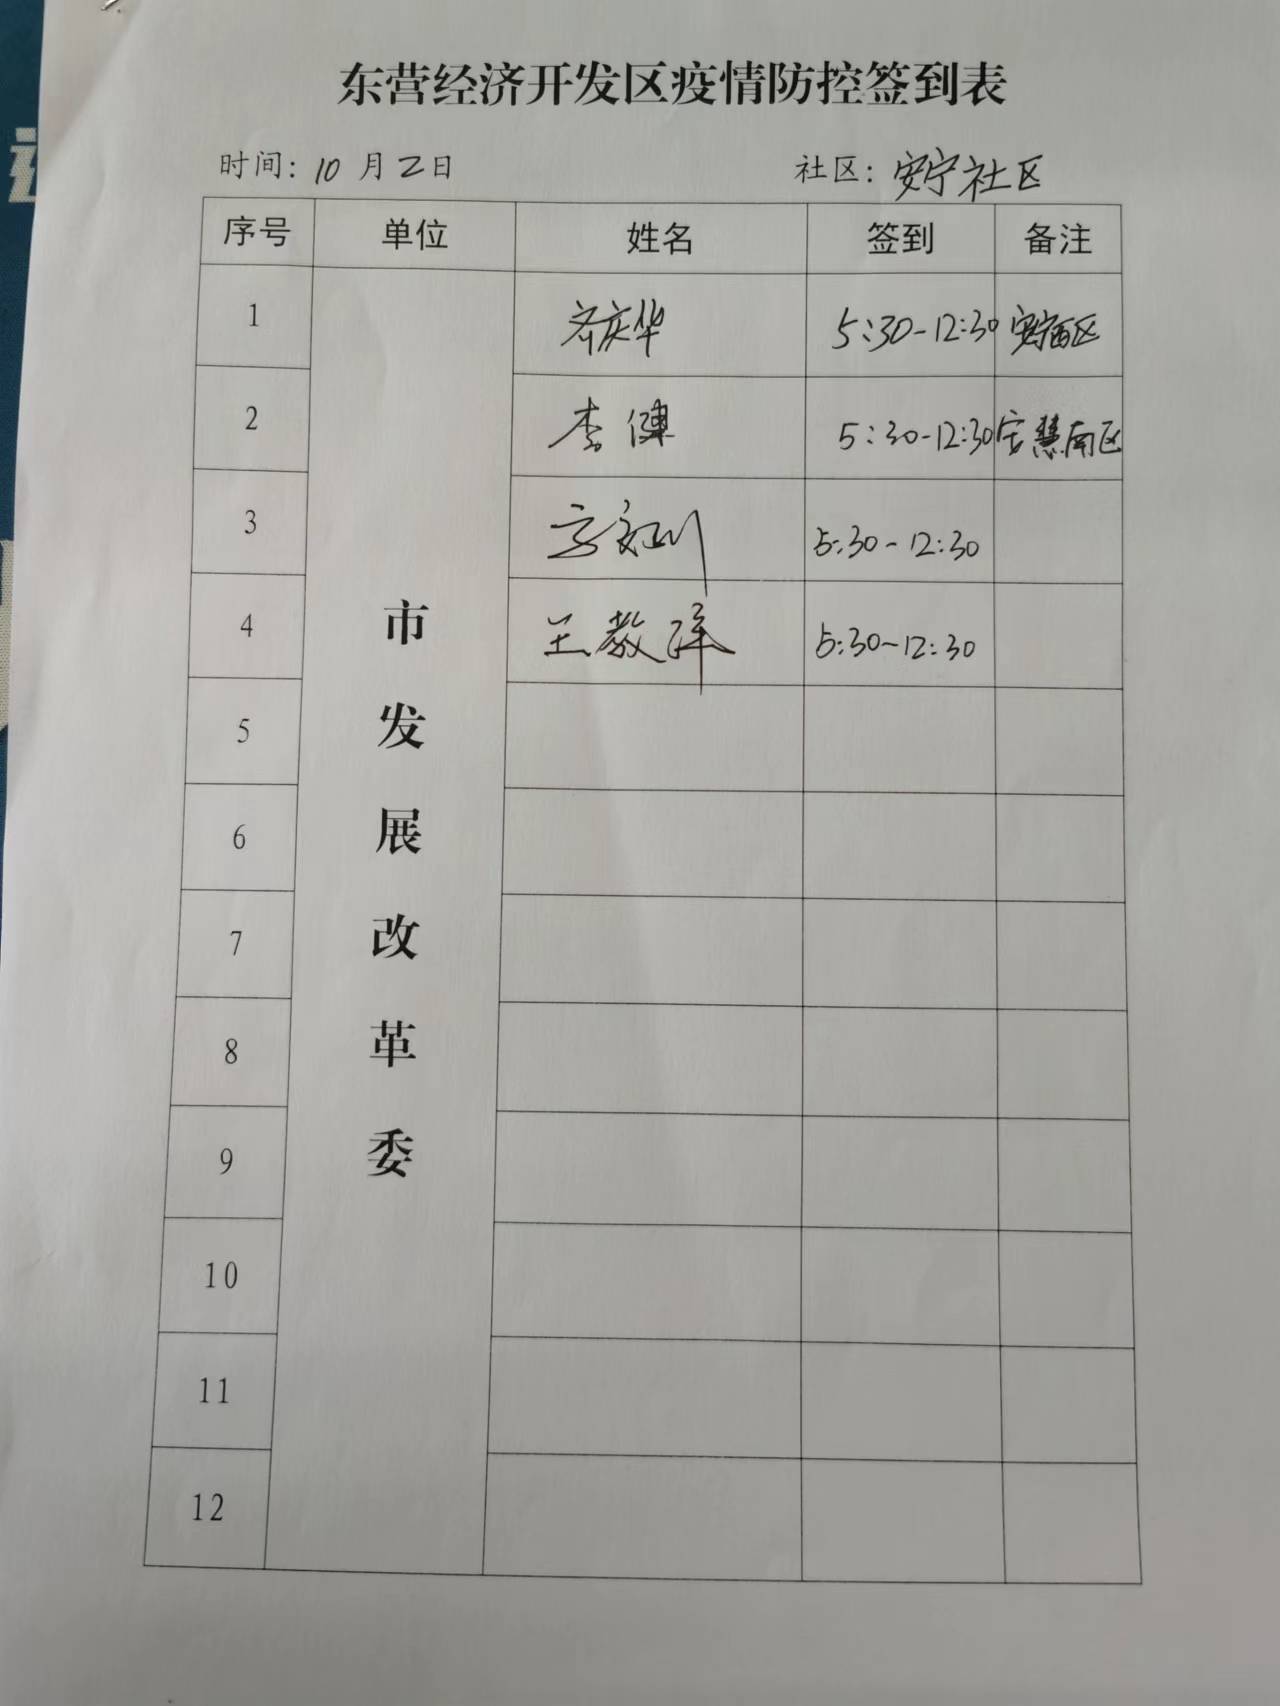 东营经济开发区疫情防控签到表
时间：10月2日 社区：安宁社区
序号 单位 姓名 签到 备注
市发展改革委
1 齐庆华 5:30-12:30 安宁西区
2 李健 5:30-12:30 安慧南区
3 5:30-12:30
4 王教洋 5:30-12:30
5
6
7
8
9
10
11
12